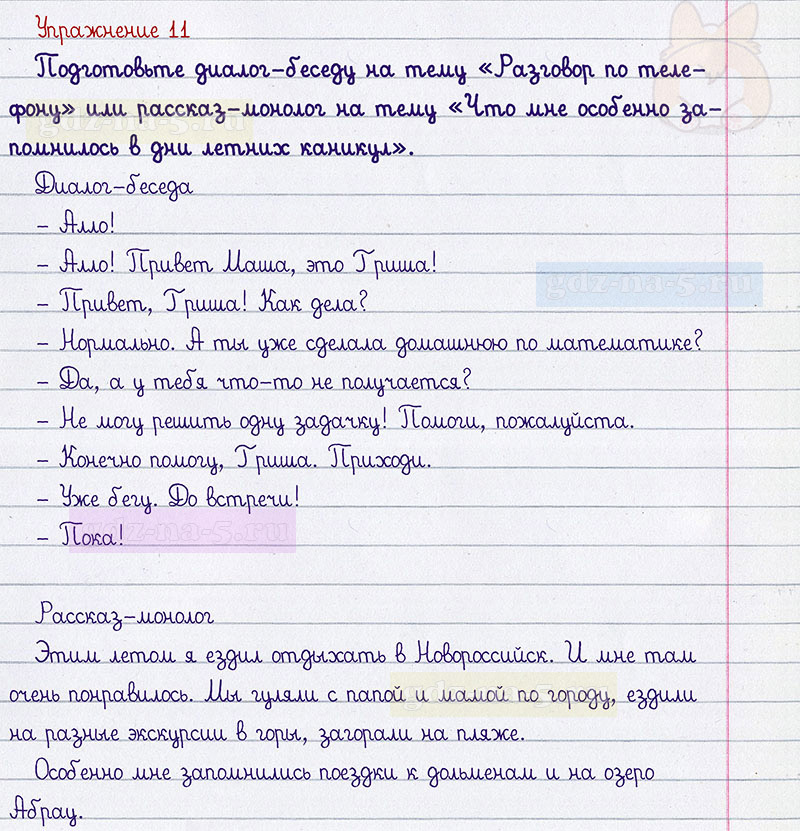 Упражнение 11
Подготовьте диалог-беседу на тему «Разговор по теле-
фону» или рассказ-монолог на тему «Что мне особенно за-
gdz-na-5.ru
помнилось в дни летних каникул».
Диалог-беседа
– Алло!
– Алло! Привет Маша, это Гриша!
gdz-na-5.ru
– Привет, Гриша! Как дела?
– Нормально. А ты уже сделала домашнюю по математике?
– Да, а у тебя что-то не получается?
– Не могу решить одну задачку! Помоги, пожалуйста.
– Конечно помогу, Гриша. Приходи.
– Уже бегу. До встречи!
– Пока!
gdz-na-5.ru
Рассказ-монолог
Этим летом я ездил отдыхать в Новороссийск. И мне там
очень понравилось. Мы гуляли с папой и мамой по городу, ездили
gdz-na-5.ru
на разные экскурсии в горы, загорали на пляже.
Особенно мне запомнились поездки к дольменам и на озеро
Абрау.